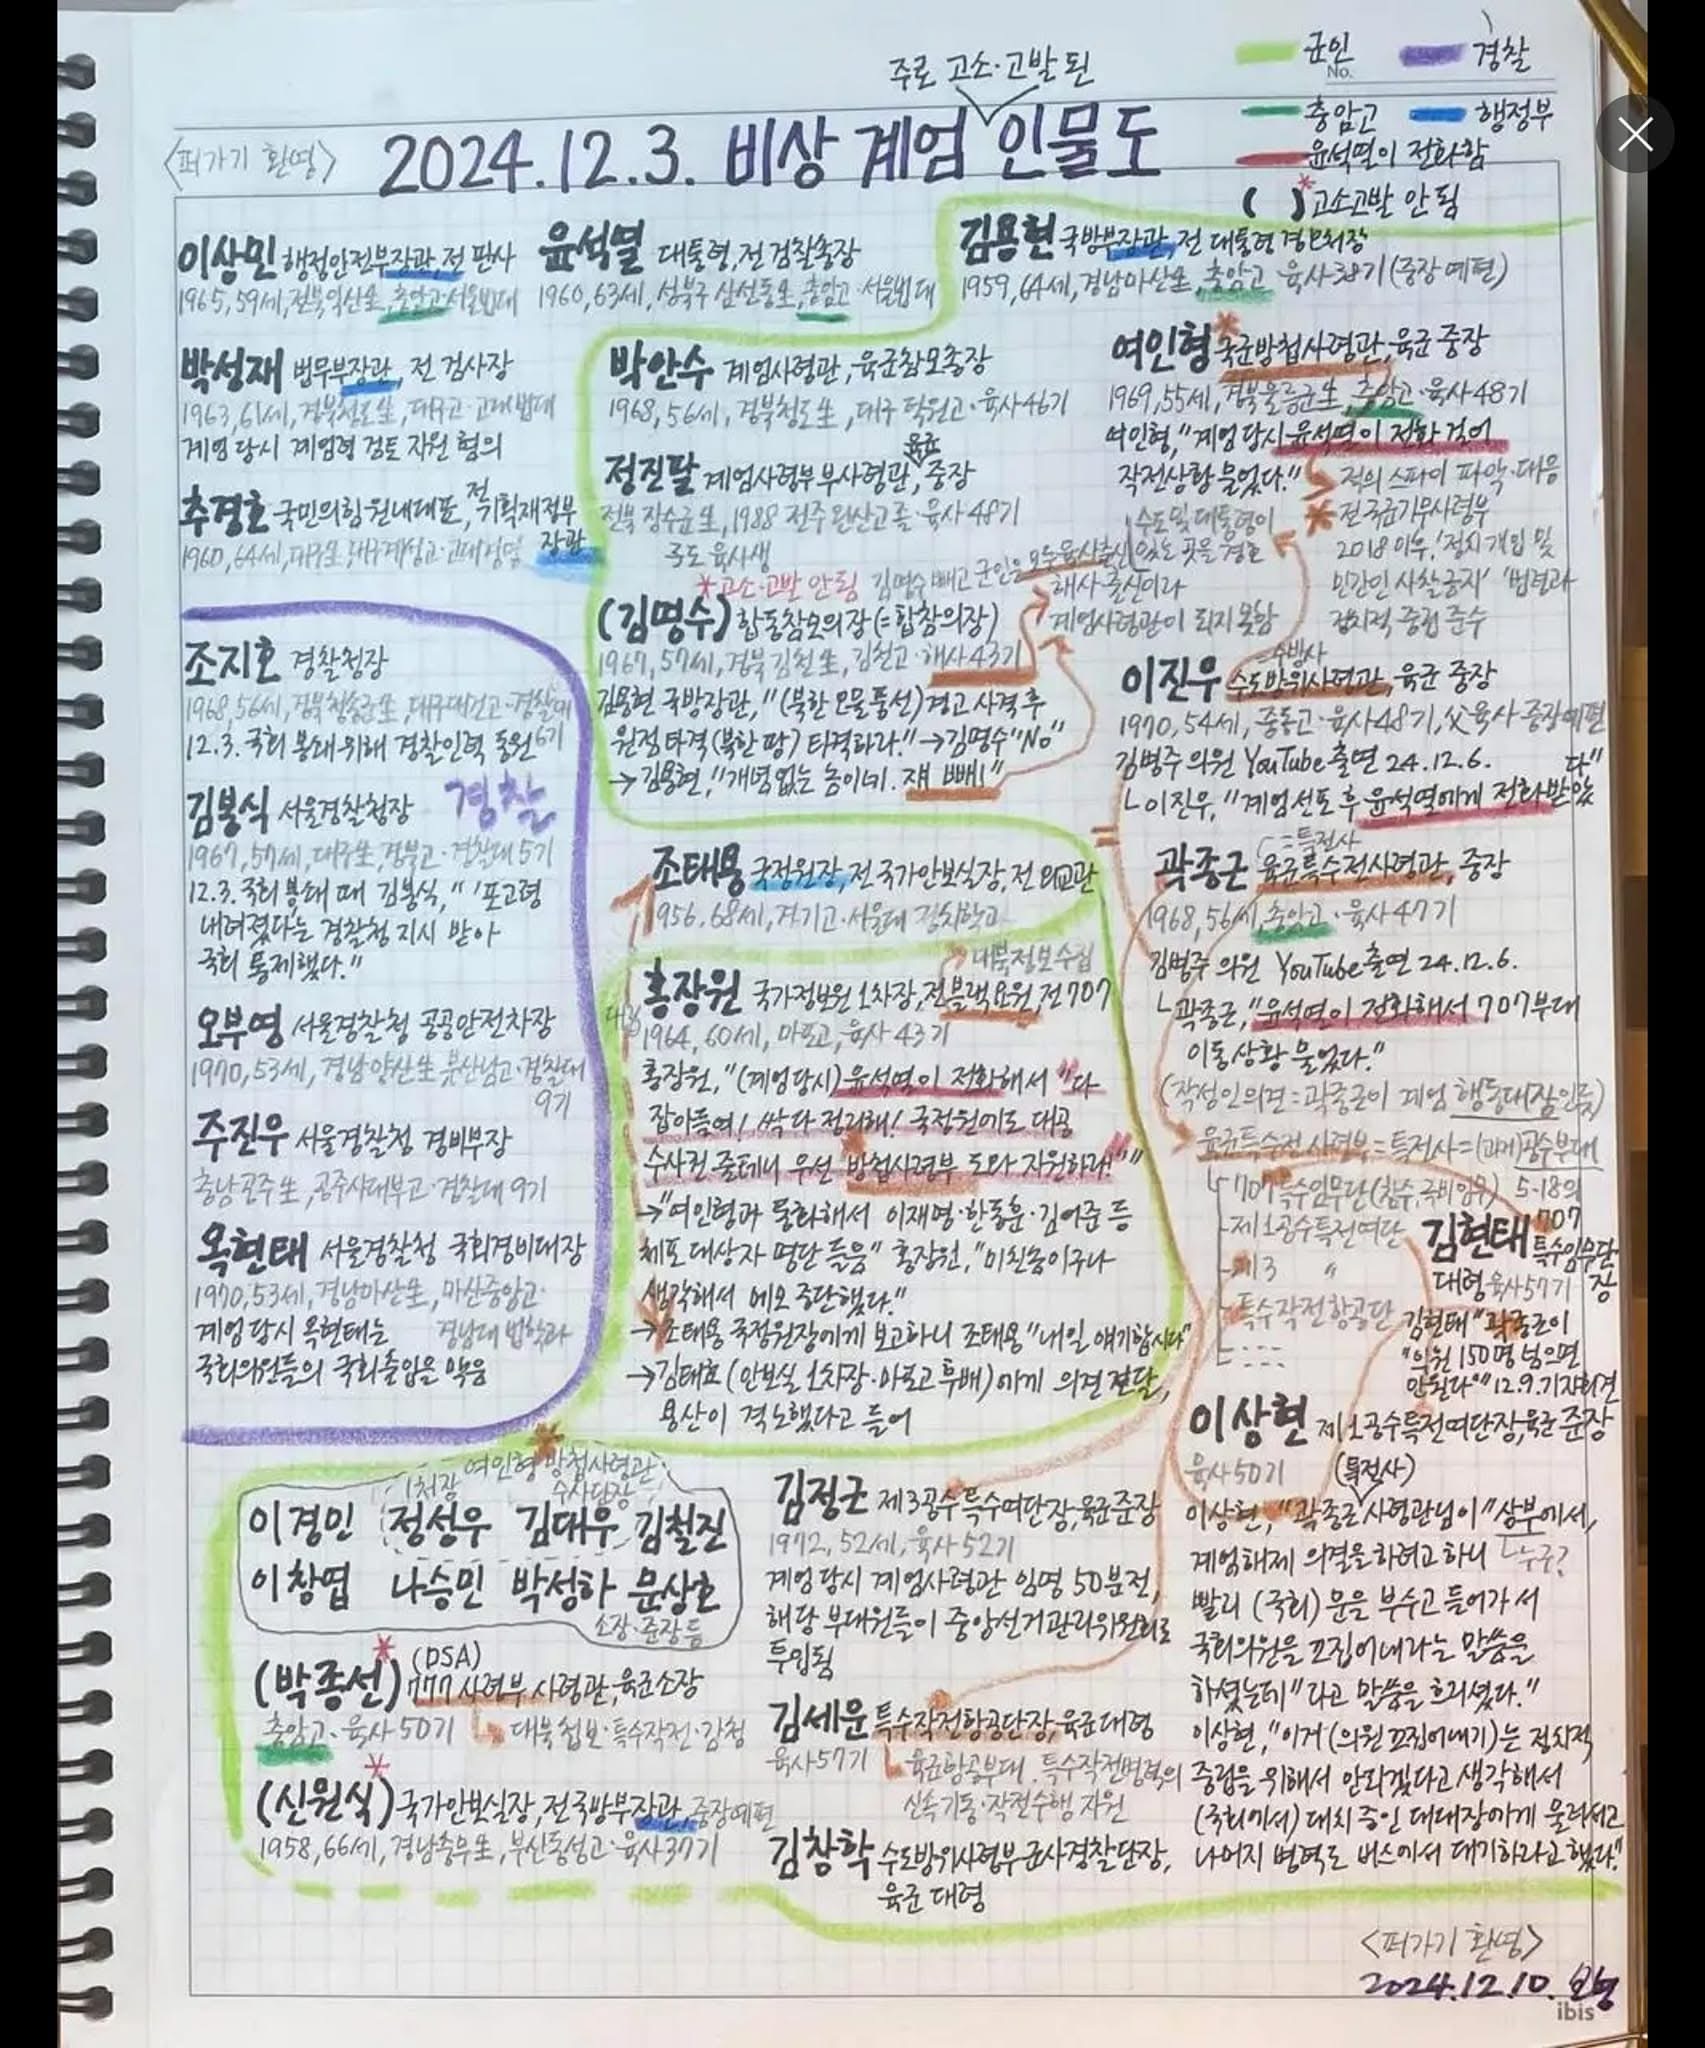 주로 고소·고발 된
군인 경찰
No.
충암고 행정부
윤석열이 전화함
( )* 고소고발 안 됨
<퍼가기 환영>
2024.12.3. 비상 계엄 인물도
이상민 행정안전부장관, 전 판사
1965, 59세, 전북익산生, 충암고·서울법대
윤석열 대통령, 전 검찰총장
1960, 63세, 성북구 삼선동生, 충암고·서울법대
김용현 국방부장관, 전 대통령 경호처장
1959, 64세, 경남마산生, 충암고·육사38기 (중장예편)
박성재 법무부장관, 전 검사장
1963, 61세, 경북청도生, 대구고·고대법대
계엄 당시 계엄령 검토 지원 혐의
추경호 국민의힘 원내대표, 전 기획재정부
장관
1960, 64세, 대구生, 대구계성고·고대경영
박안수 계엄사령관, 육군참모총장
1968, 56세, 경북청도生, 대구 덕원고·육사46기
정진팔 계엄사령부 부사령관, 육군 중장
전북 장수군生, 1988 전주 완산고 졸·육사48기
국도 육사생
*고소·고발 안 됨 김명수 빼고 군인은 모두 육사출신
(김명수) 합동참모의장 (=합참의장)
1967, 57세, 경북 김천生, 김천고·해사43기
해사 출신이라
계엄사령관이 되지 못함
김용현 국방장관, "(북한 오물풍선) 경고 사격 후
원점 타격(북한 땅) 타격하라." → 김명수 "No"
→ 김용현, "개념없는 놈이네. 쟤 빼!"
여인형* 국군방첩사령관, 육군 중장
1969, 55세, 경북울릉군生, 충암고·육사48기
여인형, "계엄 당시 윤석열이 전화 걸어
작전상황 물었다."
적의 스파이 파악·대응
* 전 국군기무사령부
2018 이후, '정치개입 및
민간인 사찰금지' '법령과
정치적 중립 준수
수도 및 대통령이
있는 곳을 경호
=수방사
이진우 수도방위사령관, 육군 중장
1970, 54세, 중동고·육사48기, 父육사 중장예편
김병주 의원 YouTube 출연 24.12.6.
ㄴ이진우, "계엄 선포 후 윤석열에게 전화받았
다"
=특전사
곽종근 육군특수전사령관, 중장
1968, 56세, 충암고·육사47기
김병주 의원 YouTube 출연 24.12.6.
ㄴ곽종근, "윤석열이 전화해서 707부대
이동상황 물었다."
(작성인의견=곽종근이 계엄 행동대장인듯)
육군특수전 사령부=특전사=(과거)공수부대
707특수임무단 (참수, 국비임무) 5·18의
제1공수특전여단
제3 〃
특수작전항공단
김현태 707
특수임무단
장
대령 육사57기
김현태 "곽종근이
"의원 150명 넘으면
안된다"" 12.9. 기자회견
이상현 제1공수특전여단장, 육군 준장
육사50기 (특전사)
이상현, "곽종근 사령관님이 "상부에서,
계엄해제 의결을 하려고 하니 ㄴ누구?
빨리 (국회) 문을 부수고 들어가서
국회의원을 끄집어내라는 말씀을
하셨는데"라고 말씀을 흐리셨다."
이상현, "이거 (의원 끄집어내기)는 정치적
중립을 위해서 안되겠다고 생각해서
(국회에서) 대치 중인 대대장에게 물러서고
나머지 병력도 버스에서 대기하라고 했다."
조지호 경찰청장
1968, 56세, 경북청송군生, 대구대건고·경찰대
6기
12.3. 국회 봉쇄 위해 경찰인력 동원
김봉식 서울경찰청장 경찰
1967, 57세, 대구生, 경북고·경찰대 5기
12.3. 국회 봉쇄 때 김봉식, "'포고령
내려졌다'는 경찰청 지시 받아
국회 통제했다."
오부명 서울경찰청 공공안전차장
1970, 53세, 경남양산生 부산남고·경찰대
9기
주진우 서울경찰청 경비부장
충남공주生, 공주사대부고·경찰대 9기
목현태 서울경찰청 국회경비대장
1970, 53세, 경남마산生, 마산중앙고·
경남대 법학과
계엄 당시 목현태는
국회의원들의 국회출입을 막음
조태용 국정원장, 전 국가안보실장, 전 외교관
1956, 68세, 경기고·서울대 정치학과
대북정보수집
홍장원 국가정보원 1차장, 전 블랙요원, 전 707
1964, 60세, 마포고, 육사 43기
홍장원, "(계엄당시) 윤석열이 전화해서 "다
잡아들여! 싹 다 정리해! 국정원에도 대공
수사권 줄테니 우선 방첩사령부 도와 지원하라!""
→"여인형과 통화해서 이재명·한동훈·김어준 등
체포 대상자 명단 들음" 홍장원, "미친놈이구나
생각해서 메모 중단했다."
→조태용 국정원장에게 보고하니 조태용 "내일 얘기합시다"
→김태효 (안보실 1차장·마포고 후배)에게 의견 전달,
용산이 격노했다고 들어
1처장 여인형 방첩사령관·
수사단장
이경민 정성우 김대우 김철진
이창엽 나승민 박성하 문상호
소장·준장 등
(박종선)* (DSA)
777 사령부 사령관, 육군소장
충암고·육사50기 대북첩보·특수작전·감청
(신원식)* 국가안보실장, 전국방부장관, 중장예편
1958, 66세, 경남충무生, 부산동성고·육사37기
김정근 제3공수특수여단장, 육군준장
1972, 52세, 육사52기
계엄 당시 계엄사령관 임명 50분전,
해당 부대원들이 중앙선거관리위원회로
투입됨
김세운 특수작전항공단장, 육군대령
육사57기 육군항공부대. 특수작전병력의
신속기동·작전수행 지원
김창학 수도방위사령부 군사경찰단장,
육군 대령
<퍼가기 환영>
2024.12.10.
ibis